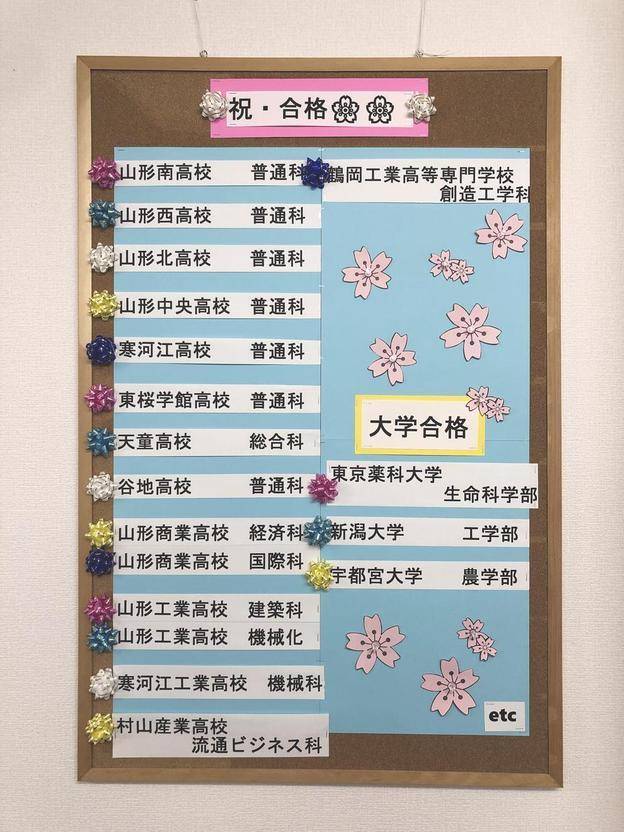 祝・合格🌸🌸
山形南高校 普通科
山形西高校 普通科
山形北高校 普通科
山形中央高校 普通科
寒河江高校 普通科
東桜学館高校 普通科
天童高校 総合科
谷地高校 普通科
山形商業高校 経済科
山形商業高校 国際科
山形工業高校 建築科
山形工業高校 機械化
寒河江工業高校 機械科
村山産業高校
流通ビジネス科
鶴岡工業高等専門学校
創造工学科
大学合格
東京薬科大学
生命科学部
新潟大学 工学部
宇都宮大学 農学部
etc